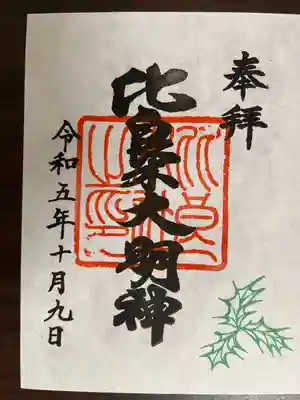 奉拝
比良木大明神
令和五年十月九日